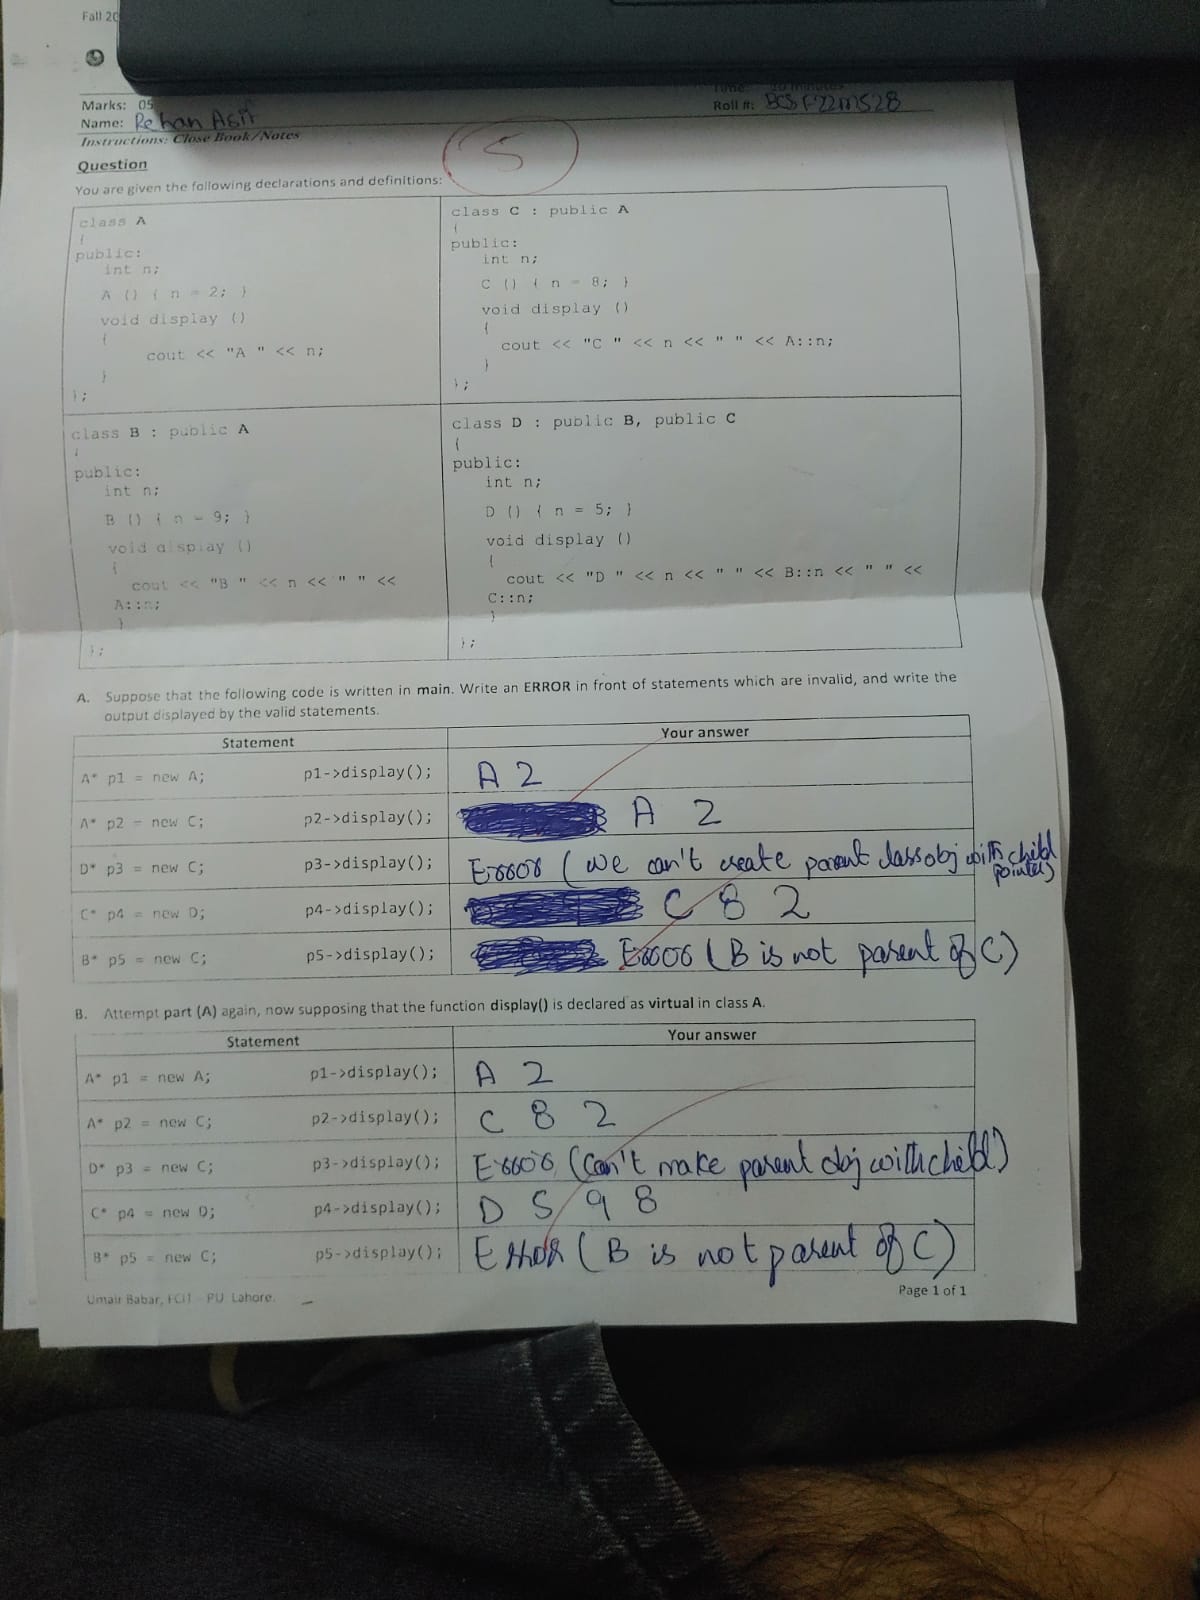 Fall 20
Marks: 05
Time: 20 minutes
Name: Rehan Asif
Roll #: BCSF22M528
Instructions: Close Book/Notes
5
Question
You are given the following declarations and definitions:
class A
{
public:
int n;
A () { n = 2; }
void display ()
{
cout << "A " << n;
}
};
class C : public A
{
public:
int n;
C () { n = 8; }
void display ()
{
cout << "C " << n << " " << A::n;
}
};
class B : public A
{
public:
int n;
B () { n = 9; }
void display ()
{
cout << "B " << n << " " <<
A::n;
}
};
class D : public B, public C
{
public:
int n;
D () { n = 5; }
void display ()
{
cout << "D " << n << " " << B::n << " " <<
C::n;
}
};
A. Suppose that the following code is written in main. Write an ERROR in front of statements which are invalid, and write the
output displayed by the valid statements.
Statement Your answer
A* p1 = new A; p1->display(); A 2
A* p2 = new C; p2->display(); A 2
D* p3 = new C; p3->display(); Error (we can't create parent class obj with child
pointer)
C* p4 = new D; p4->display(); C 8 2
B* p5 = new C; p5->display(); Error (B is not parent of C)
B. Attempt part (A) again, now supposing that the function display() is declared as virtual in class A.
Statement Your answer
A* p1 = new A; p1->display(); A 2
A* p2 = new C; p2->display(); C 8 2
D* p3 = new C; p3->display(); Error (Can't make parent obj with child)
C* p4 = new D; p4->display(); D 5 9 8
B* p5 = new C; p5->display(); Error (B is not parent of C)
Umair Babar, FCIT - PU Lahore.
Page 1 of 1